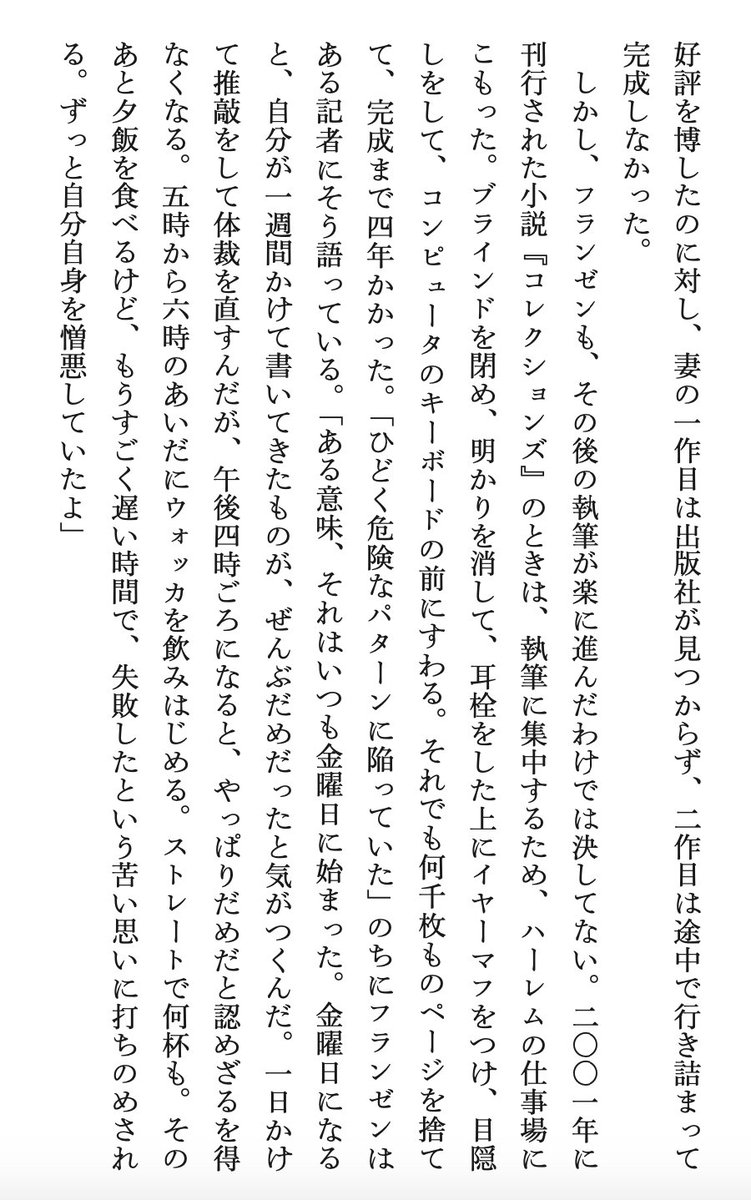 好評を博したのに対し、妻の一作目は出版社が見つからず、二作目は途中で行き詰まって
完成しなかった。
しかし、フランゼンも、その後の執筆が楽に進んだわけでは決してない。二〇〇一年に
刊行された小説『コレクションズ』のときは、執筆に集中するため、ハーレムの仕事場に
こもった。ブラインドを閉め、明かりを消して、耳栓をした上にイヤーマフをつけ、目隠
しをして、コンピュータのキーボードの前にすわる。それでも何千枚ものページを捨て
て、完成まで四年かかった。「ひどく危険なパターンに陥っていた」のちにフランゼンは
ある記者にそう語っている。「ある意味、それはいつも金曜日に始まった。金曜日になる
と、自分が一週間かけて書いてきたものが、ぜんぶだめだったと気がつくんだ。一日かけ
て推敲をして体裁を直すんだが、午後四時ごろになると、やっぱりだめだと認めざるを得
なくなる。五時から六時のあいだにウォッカを飲みはじめる。ストレートで何杯も。その
あと夕飯を食べるけど、もうすごく遅い時間で、失敗したという苦い思いに打ちのめされ
る。ずっと自分自身を憎悪していたよ」